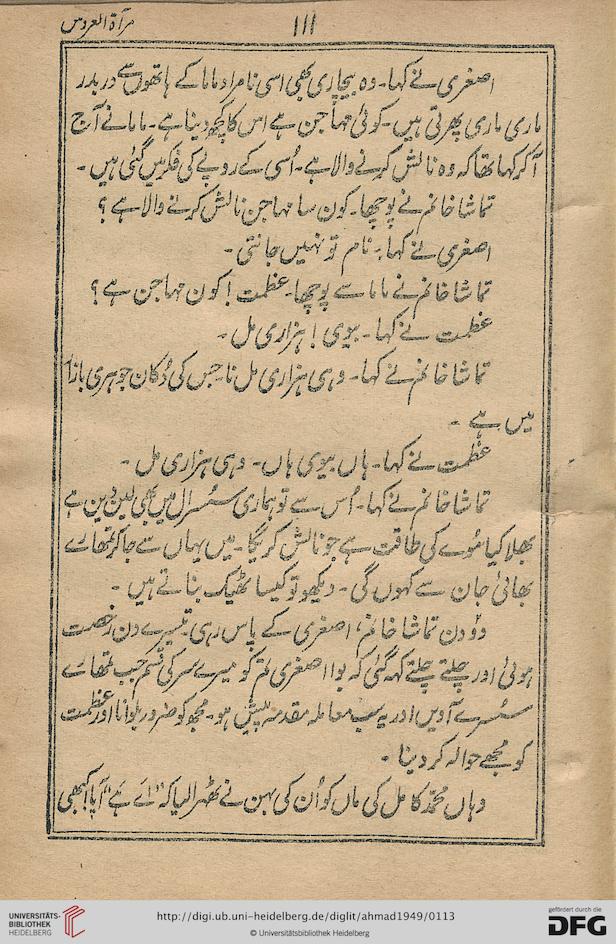 مرآۃ العروس
۱۱۱
اصغری نے کہا۔ وہ بیچاری بھی اسی نامراد ماما کے ہاتھوں سے در بدر
ماری ماری پھرتی ہیں۔ کوئی مہاجن ہے اس کا کچھ دینا ہے۔ ماما نے آج
آ کر کہا تھا کہ وہ نالش کرنے والا ہے۔ اُسی کے روپے کی فکر میں گئی ہیں۔
تماشا خانم نے پوچھا۔ کون سا مہاجن نالش کرنے والا ہے؟
اصغری نے کہا۔ نام تو نہیں جانتی۔
تماشا خانم نے ماما سے پوچھا۔ عظمت! کون مہاجن ہے؟
عظمت نے کہا۔ بیوی! ہزاری مل۔
تماشا خانم نے کہا۔ وہی ہزاری مل نا۔ جس کی دُکان جوہری بازار
میں ہے۔
عظمت نے کہا۔ ہاں بیوی ہاں۔ وہی ہزاری مل۔
تماشا خانم نے کہا۔ اُس سے تو ہماری سسرال میں بھی لین دین ہے
بھلا کیا مُوے کی طاقت ہے جو نالش کریگا۔ میں یہاں سے جا کر تمھارے
بھائی جان سے کہوں گی۔ دیکھو تو کیسا ٹھیک بناتے ہیں۔
دو دن تماشا خانم، اصغری کے پاس رہی۔ تیسرے دن رخصت
ہوئی اور چلتے چلتے کہہ گئی کہ بوا اصغری تم کو میرے سر کی قسم جب تمھارے
سسرے آویں اور یہ سب معاملہ مقدمہ پیش ہو۔ مجھ کو ضرور بلوانا اور عظمت
کو مجھے حوالہ کر دینا۔
وہاں محمّد کامل کی ماں کو اُن کی بہن نے ٹھہرا لیا کہ "اے ہے" آپا! کبھی
UNIVERSITÄTS-
BIBLIOTHEK
HEIDELBERG
http://digi.ub.uni-heidelberg.de/diglit/ahmad1949/0113
© Universitätsbibliothek Heidelberg
gefördert durch die
DFG